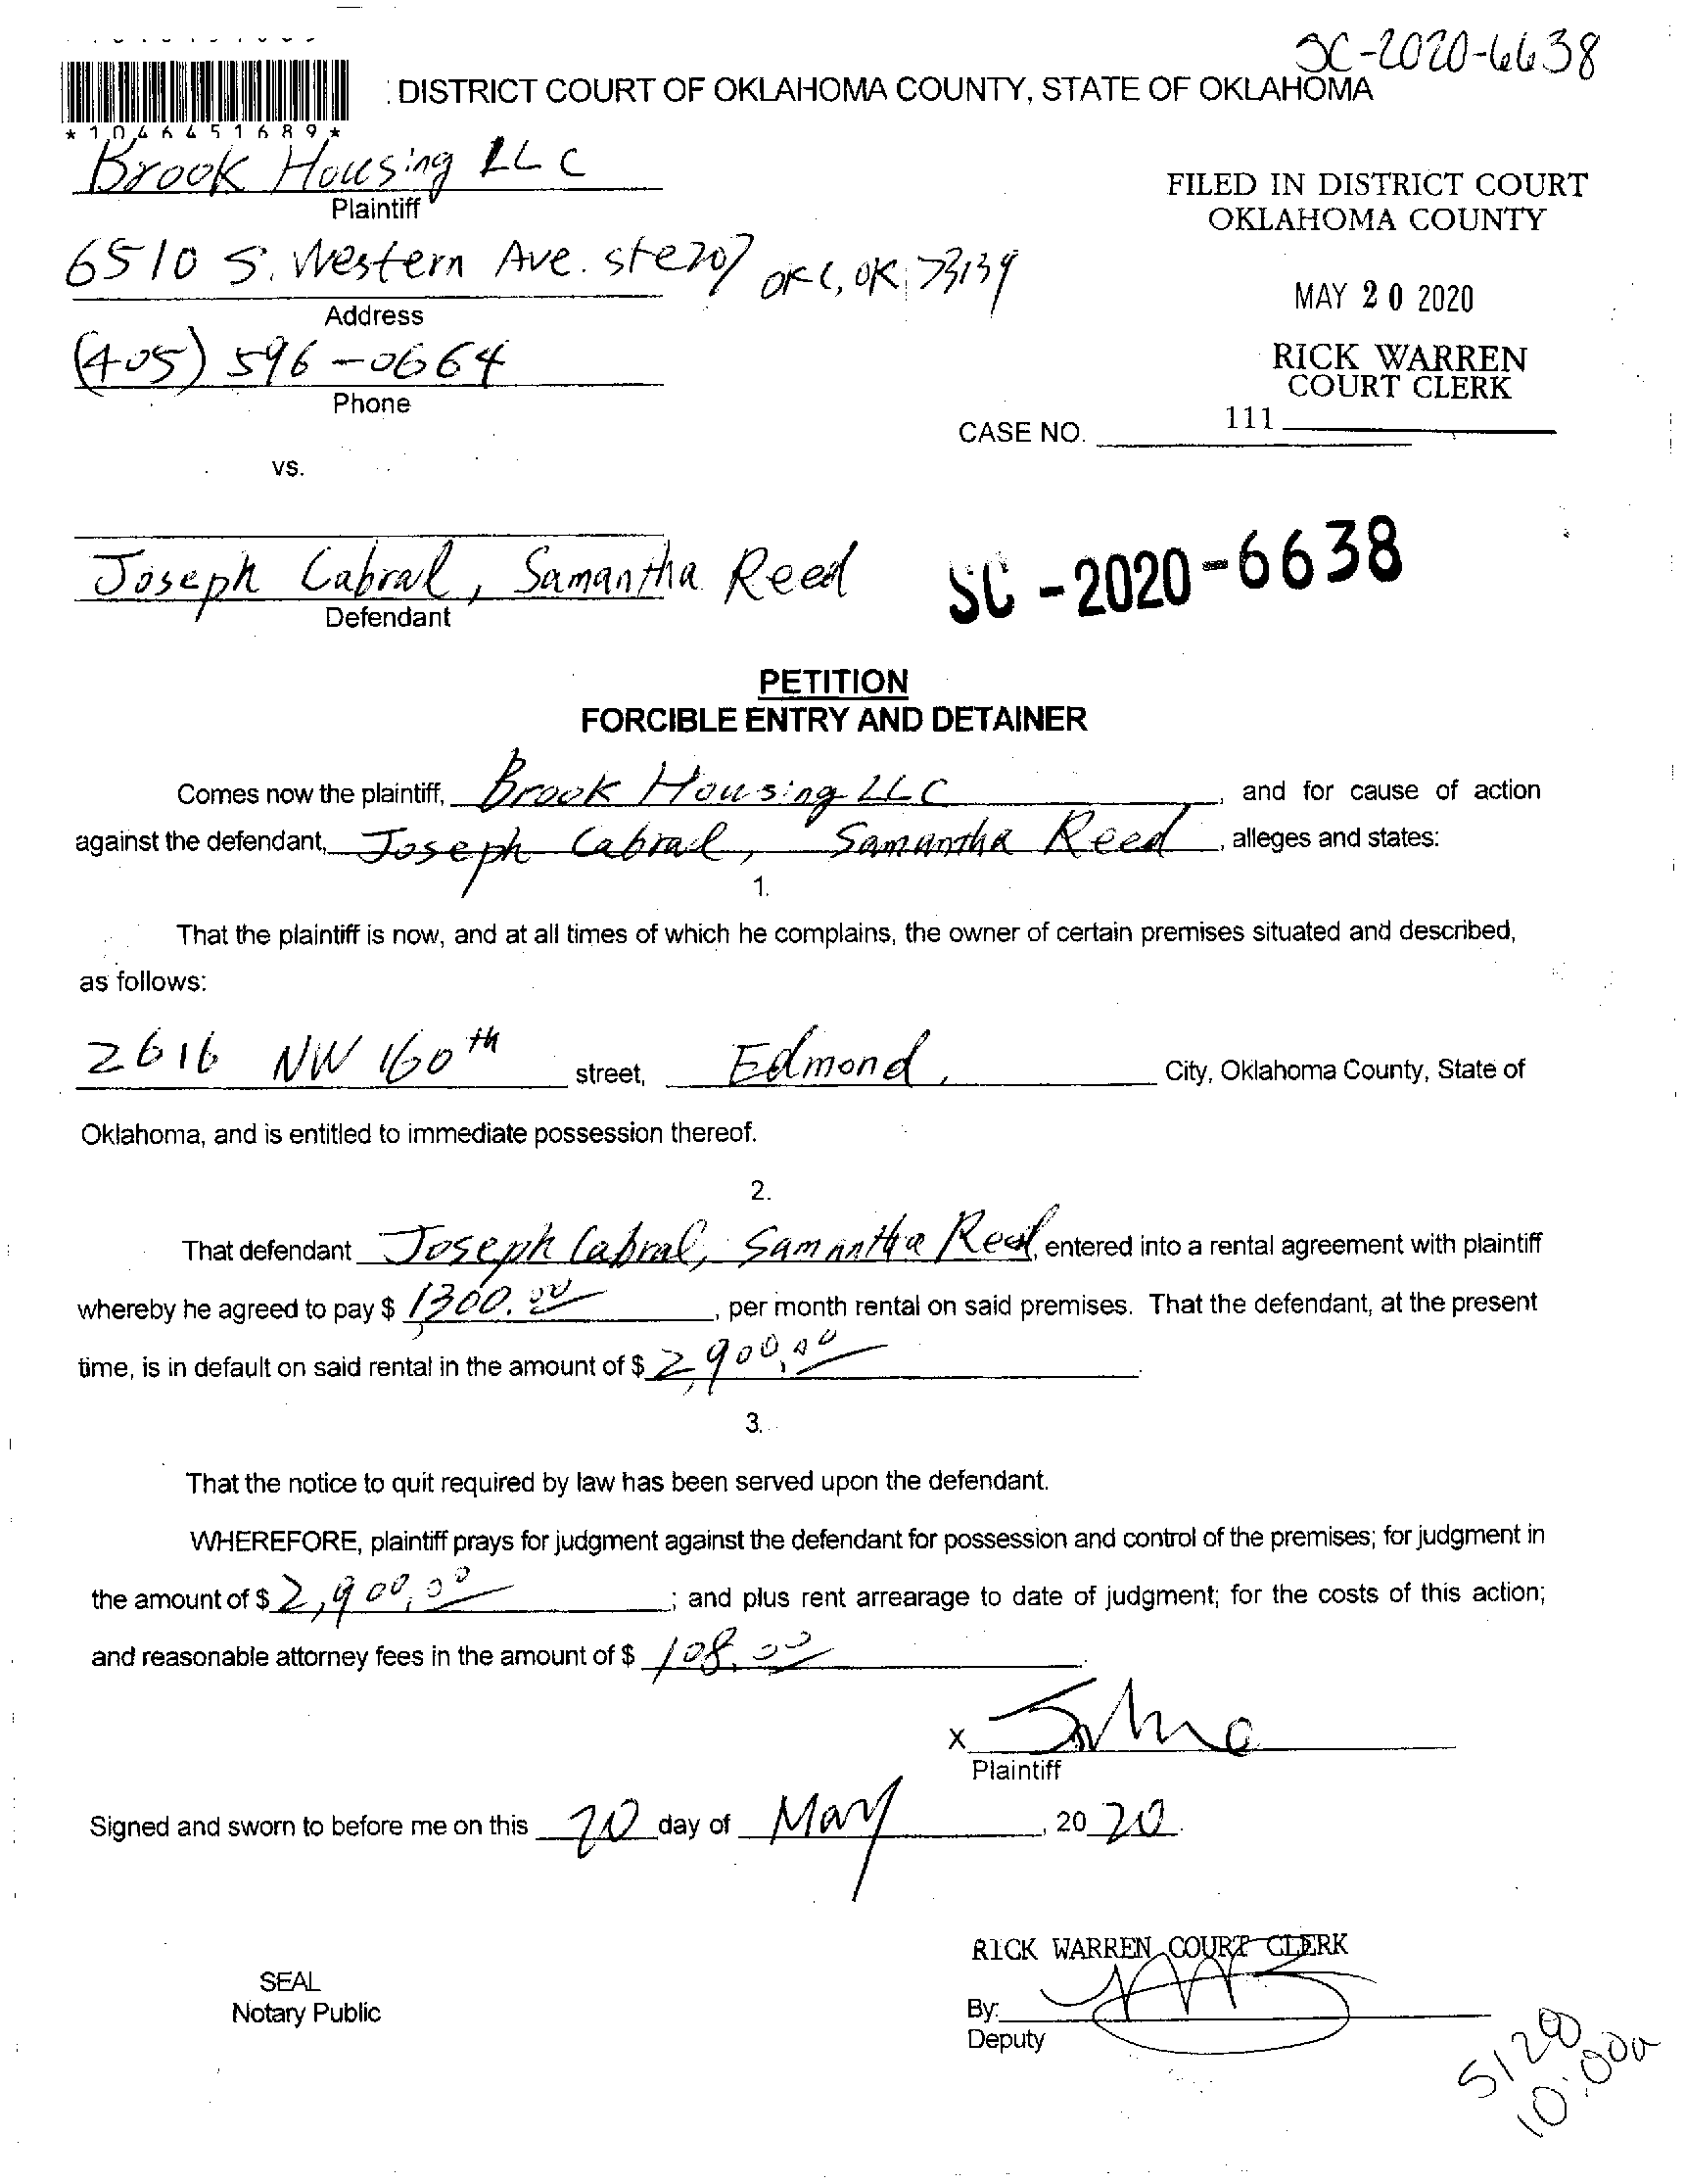 SC-2020-6638
: DISTRICT COURT OF OKLAHOMA COUNTY, STATE OF OKLAHOMA
* 1 0 4 6 4 5 1 6 8 9 *
Brook Housing LLC
Plaintiff
6510 S. Western Ave. ste207 OKC, OK, 73139
Address
(405) 596-0664
Phone
FILED IN DISTRICT COURT
OKLAHOMA COUNTY
MAY 20 2020
RICK WARREN
COURT CLERK
111
CASE NO.
vs.
Joseph Cabral, Samantha Reed
Defendant
SC-2020-6638
PETITION
FORCIBLE ENTRY AND DETAINER
Comes now the plaintiff, Brook Housing LLC, and for cause of action
against the defendant, Joseph Cabral, Samantha Reed, alleges and states:
1.
That the plaintiff is now, and at all times of which he complains, the owner of certain premises situated and described,
as follows:
2616 NW 160th street, Edmond, City, Oklahoma County, State of
Oklahoma, and is entitled to immediate possession thereof.
2.
That defendant Joseph Cabral, Samantha Reed, entered into a rental agreement with plaintiff
whereby he agreed to pay $ 1300.00, per month rental on said premises. That the defendant, at the present
time, is in default on said rental in the amount of $ 2,900.00.
3.
That the notice to quit required by law has been served upon the defendant.
WHEREFORE, plaintiff prays for judgment against the defendant for possession and control of the premises; for judgment in
the amount of $ 2,900.00; and plus rent arrearage to date of judgment; for the costs of this action;
and reasonable attorney fees in the amount of $ 108.00.
x
Plaintiff
Signed and sworn to before me on this 20 day of May, 20 20.
RICK WARREN COURT CLERK
SEAL
Notary Public
By:
Deputy
5/28
10:00a